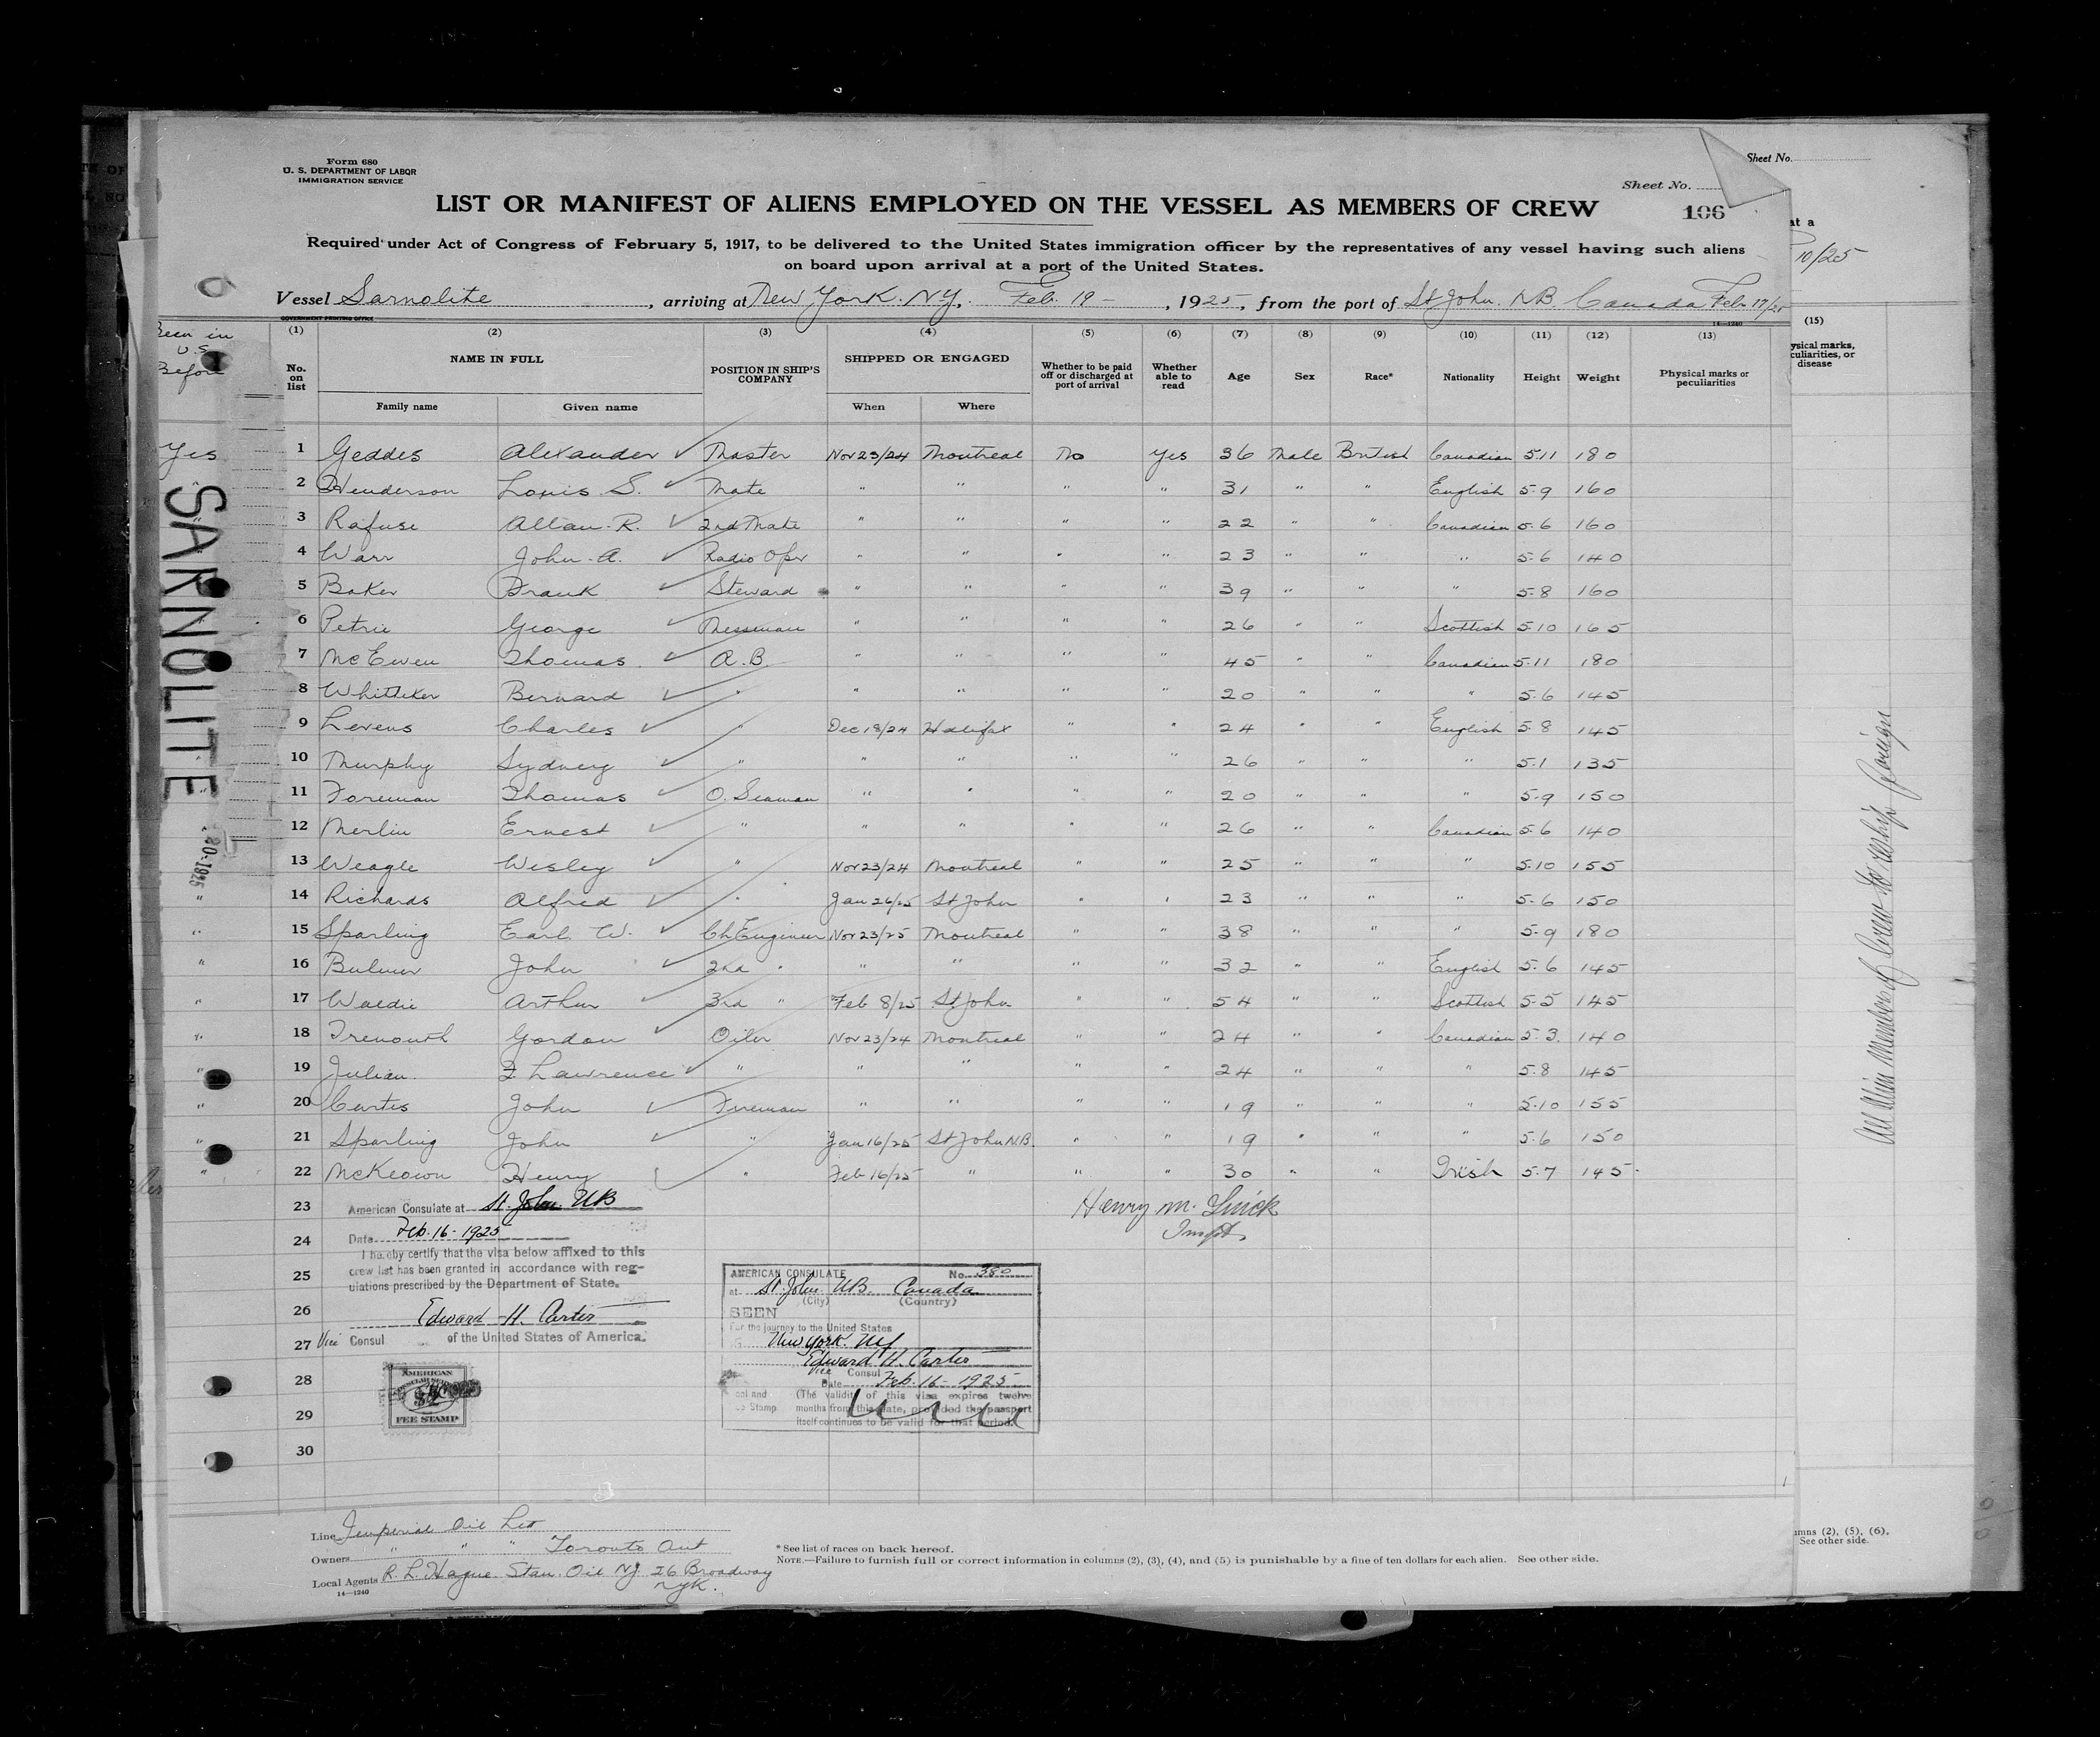 Form 680
U. S. DEPARTMENT OF LABOR
IMMIGRATION SERVICE
Sheet No.
Sheet No.
LIST OR MANIFEST OF ALIENS EMPLOYED ON THE VESSEL AS MEMBERS OF CREW
106
Required under Act of Congress of February 5, 1917, to be delivered to the United States immigration officer by the representatives of any vessel having such aliens
on board upon arrival at a port of the United States.
at a
10/25
Vessel Sarnolite, arriving at New York. NY., Feb. 19 -, 1925, from the port of St John. NB Canada Feb 17/25
GOVERNMENT PRINTING OFFICE
14—1240
Been in U.S. Before
(1) (2) (3) (4) (5) (6) (7) (8) (9) (10) (11) (12) (13) (15)
No. on list NAME IN FULL POSITION IN SHIP'S COMPANY SHIPPED OR ENGAGED Whether to be paid off or discharged at port of arrival Whether able to read Age Sex Race* Nationality Height Weight Physical marks or peculiarities
ysical marks, culiarities, or disease
Family name Given name When Where
Yes 1 Geddes Alexander ✓ Master Nov 23/24 Montreal No Yes 36 Male British Canadian 5.11 180
2 Henderson Louis S. ✓ Mate " " " " 31 " " English 5-9 160
3 Rafuse Allan. R. ✓ 2nd Mate " " " " 22 " " Canadian 5.6 160
4 Warr John. A. ✓ Radio Opr " " " " 23 " " " 5-6 140
5 Baker Frank ✓ Steward " " " " 39 " " " 5.8 160
6 Petrie George ✓ Messman " " " " 26 " " Scottish 5.10 165
7 McEwen Thomas ✓ A.B " " " " 45 " " Canadian 5-11 180
8 Whitteker Bernard ✓ " " " " " 20 " " " 5.6 145
9 Levens Charles ✓ " Dec 18/24 Halifax " " 24 " " English 5-8 145
10 Murphy Sydney ✓ " " " " " 26 " " " 5.1 135
11 Foreman Thomas ✓ O. Seaman " " " " 20 " " " 5-9 150
12 Merlin Ernest ✓ " " " " " 26 " " Canadian 5.6 140
13 Weagle Wesley ✓ " Nov 23/24 Montreal " " 25 " " " 5.10 155
" 14 Richards Alfred ✓ " Jan 26/25 St John " " 23 " " " 5-6 150
" 15 Sparling Earl. W. ✓ Ch Engineer Nov 23/25 Montreal " " 38 " " " 5-9 180
" 16 Bulmer John ✓ 2nd " " " " " 32 " " English 5.6 145
" 17 Waldie Arthur ✓ 3rd " Feb 8/25 St. John " " 54 " " Scottish 5-5 145
" 18 Trenouth Gordon ✓ Oiler Nov 23/24 Montreal " " 24 " " Canadian 5-3. 140
" 19 Julian. F. Lawrence ✓ " " " " " 24 " " " 5.8 145
" 20 Curtis John ✓ Fireman " " " " 19 " " " 5.10 155
" 21 Sparling John ✓ " Jan 16/25 St John N.B. " " 19 " " " 5.6 150
" 22 McKeown Henry ✓ " Feb 16/25 " " " 30 " " Irish 5.7 145
SARNOLITE
20-1925
23
24
25
26
27
28
29
30
American Consulate at St. John NB
Date Feb. 16 - 1925
I hereby certify that the visa below affixed to this
crew list has been granted in accordance with reg-
ulations prescribed by the Department of State.
Edward H. Carter
Vice Consul of the United States of America.
AMERICAN
FEE STAMP
Henry M.
Inspt.
AMERICAN CONSULATE No. 380
at St. John NB. Canada
(City) (Country)
SEEN
For the journey to the United States
New York. NY
Edward H. Carter
Vice Consul
Date Feb. 16 - 1925
(The validity of this visa expires twelve
months from this date, provided the passport
itself continues to be valid for that period.
All Alien Members of Crew to reship foreign
Line Imperial Oil Ltd
Owners " " " Toronto Ont
Local Agents R. L. Hague Stan. Oil NJ 26 Broadway
NYK.
14—1240
* See list of races on back hereof.
NOTE.—Failure to furnish full or correct information in columns (2), (3), (4), and (5) is punishable by a fine of ten dollars for each alien. See other side.
umns (2), (5), (6),
See other side.